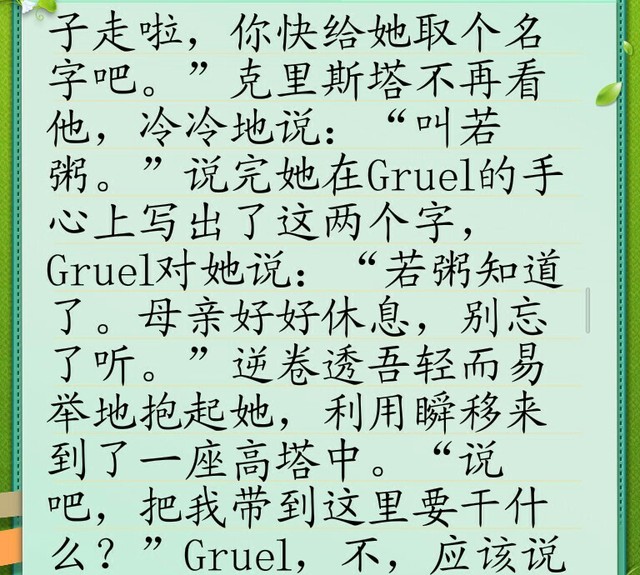 子走啦，你快给她取个名
字吧。”克里斯塔不再看
他，冷冷地说：“叫若
粥。”说完她在Gruel的手
心上写出了这两个字，
Gruel对她说：“若粥知道
了。母亲好好休息，别忘
了听。”逆卷透吾轻而易
举地抱起她，利用瞬移来
到了一座高塔中。“说
吧，把我带到这里要干什
么？”Gruel，不，应该说